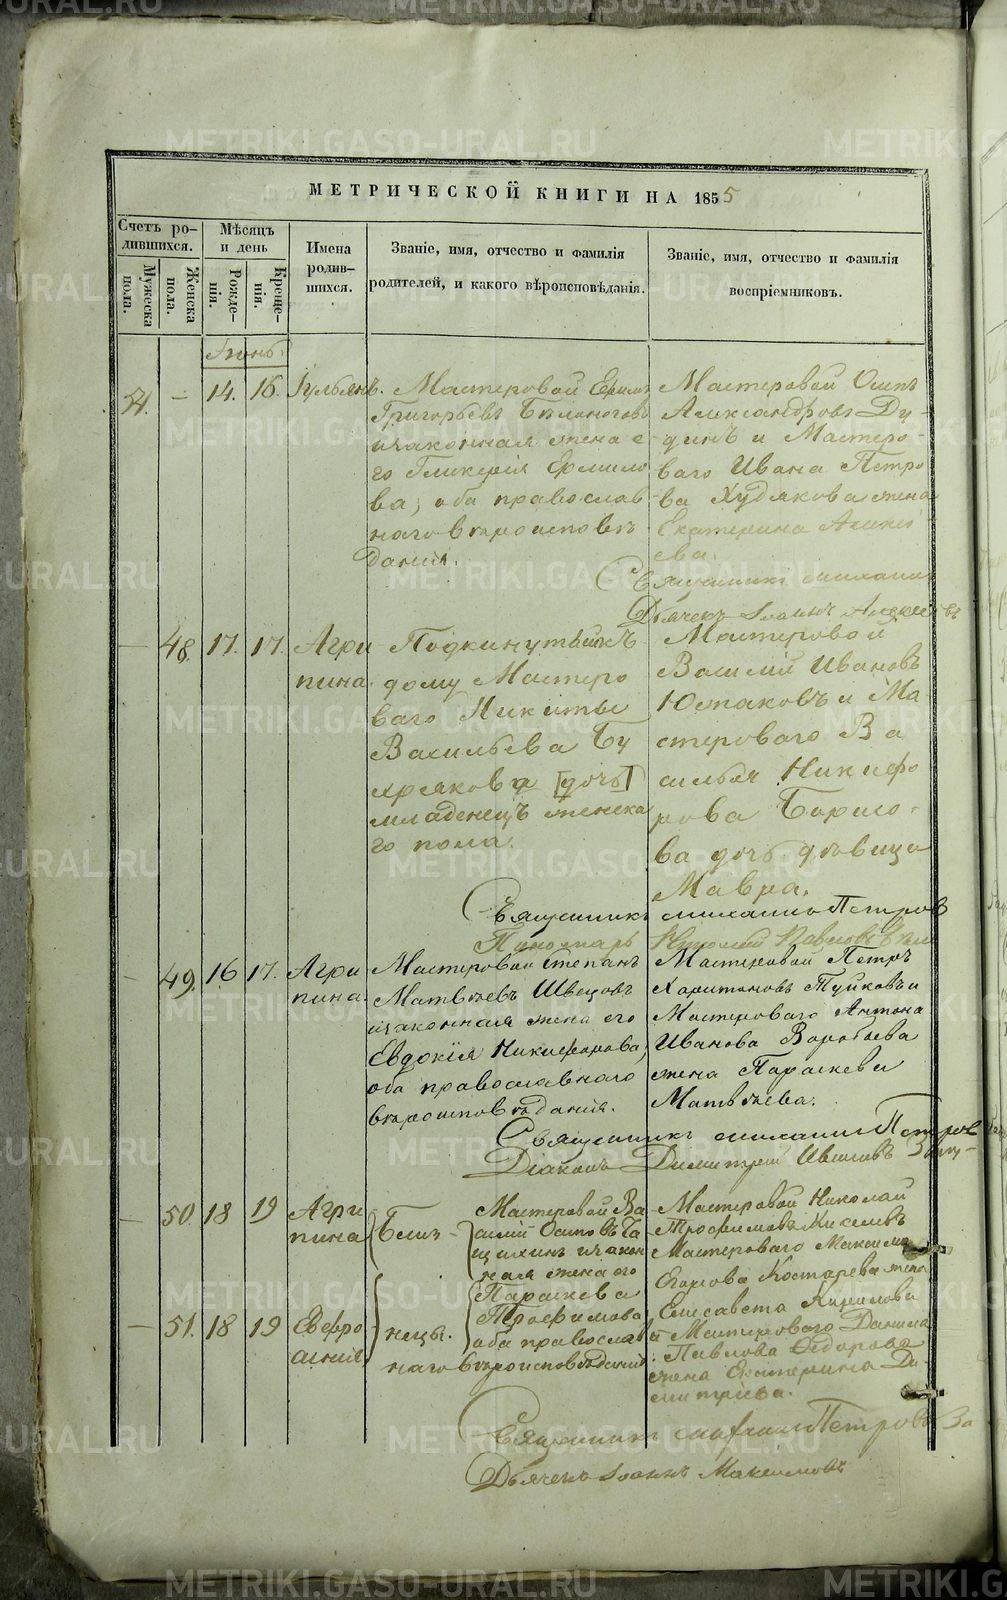 МЕТРИЧЕСКОЙ КНИГИ НА 1855
Счетъ ро-
дившихся.
Мужеска
пола.
Женска
пола.
Мѣсяцъ
и день
Рожде-
нія.
Креще-
нія.
Имена
родив-
шихся.
Званіе, имя, отчество и фамилія
родителей, и какого вѣроисповѣданія.
Званіе, имя, отчество и фамилія
воспріемниковъ.
Іюнь
14. 16.
Мастеровой
Григорьевъ Бѣлоноговъ
и законная жена е
го Гликерія Ермило
ва, оба православ
наго вѣроисповѣ
данія.
Мастеровой Осипъ
Александровъ Ду-
динъ и Мастеро-
ваго Ивана Петро
ва Худякова жена
Екатерина Алексѣ
ева.
Священникъ Михаилъ
Дьячекъ Іоаннъ
48. 17. 17. Агри
пина.
Подкинутый къ
дому Мастеро
ваго Никиты
Васильева Бу
[дочь]
младенецъ женска
го пола.
Мастеровой
Василій Ивановъ
Юшаковъ и Ма
стероваго Ва
силья Никифо
рова Борисо-
ва дочь дѣвица
Мавра.
Священникъ Михаилъ Петровъ
Пономарь Павловъ
49. 16 17. Агри
пина.
Мастеровой Степанъ
Матвѣевъ Швецовъ
и законная жена его
Евдокія Никифорова,
оба православнаго
вѣроисповѣданія.
Мастеровой Петръ
Харитоновъ Туйковъ и
Мастероваго Антона
Иванова Воробьева
жена Параскева
Матвѣева.
Священникъ Михаилъ Петров
Діаконъ Димитрій
50. 18 19 Агри
пина
51. 18 19 Евфро
синія
Близ-
нецы.
Мастеровой Ва
силій Осиповъ Та
щихинъ и закон
ная жена его
Параскева
Трофимова
оба православ
наго вѣроисповѣданія
Мастеровой Николай
Трофимовъ Киселевъ
Мастероваго Максима
Егорова Костарева жена
Елисавета Кирилова
и Мастероваго Данила
Павлова Ѳедорова
жена Екатерина Ди-
митріева.
Священникъ Михаилъ Петровъ За
Дьячекъ Іоаннъ Максимовъ
METRIKI.GASO-URAL.RU